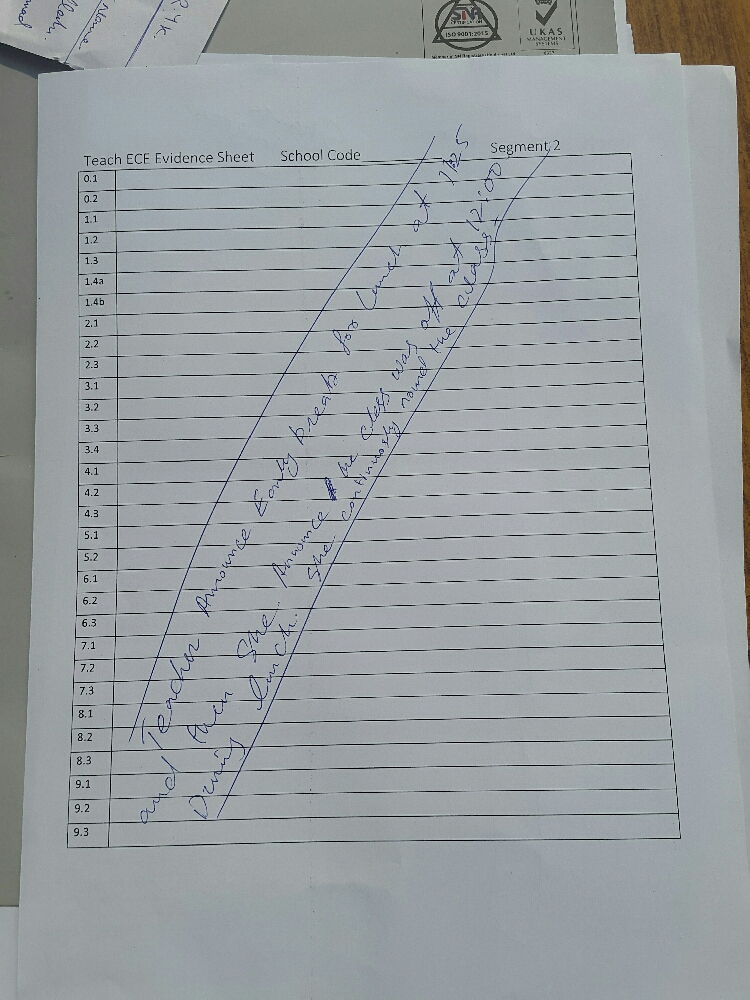 Teach ECE Evidence Sheet School Code Segment 2
0.1
0.2
1.1
1.2
1.3
1.4a
1.4b
2.1
2.2
2.3
3.1
3.2
3.3
3.4
4.1
4.2
4.3
5.1
5.2
6.1
6.2
6.3
7.1
7.2
7.3
8.1
8.2
8.3
9.1
9.2
9.3
Teacher Announce Early break for Lunch at
and then she Announce the class was off at 12:00
During lunch. She continuosly round the class.
SIM
ISO 9001:2015
UKAS
MANAGEMENT
SYSTEMS
Name